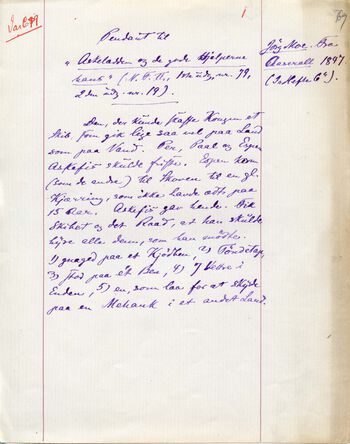 1
79
Pendant til
"Askeladden og de gode Hjælperne
hans" (N.F.E., 1ste udg. nr. 79,
2den udg. nr. 19).
Jørg. Moe. Fra
1847
Den, der kunde skaffe Kongen et
Skib som gik lige saa vel paa Land
som paa Vand. Per, Paal og Espen
Askefis skulde friste. Espen kom
(som de andre) til Skoven til en gl.
Kjærring, som ikke havde ædt paa
15 Aar. Askefis gav hende. Fik
Skibet og det Raad, at han skulde
hyre alle dem, som han mødte.
1) gnaged paa et Kjødben, 2)
3) stod paa et Ben, 4) 7 i
Enden, 5) en, som laa for at skyde
paa en i et andet Land.